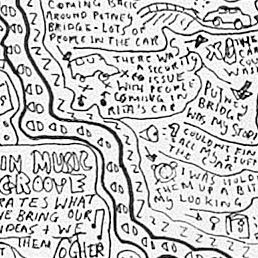 COMING BACK
AROUND PUTNEY
BRIDGE-LOTS OF
PEOPLE IN THE CAR
THERE WAS
SECURITY
ISSUE
WITH PEOPLE
COMING IN
RITA'S CAR
THE
CAR
COULD
WAS
PUTNEY
BRIDGE
WAS MY STOP
COULDN'T FIND
ALL MY STUFF
THE CAR
I WAS HOLD
THEM UP A BIT
MY LOOKING
IN MUSIC
GROOVE
RATES WHAT
WE BRING OUR
IDEAS + WE
THEM
OTHER